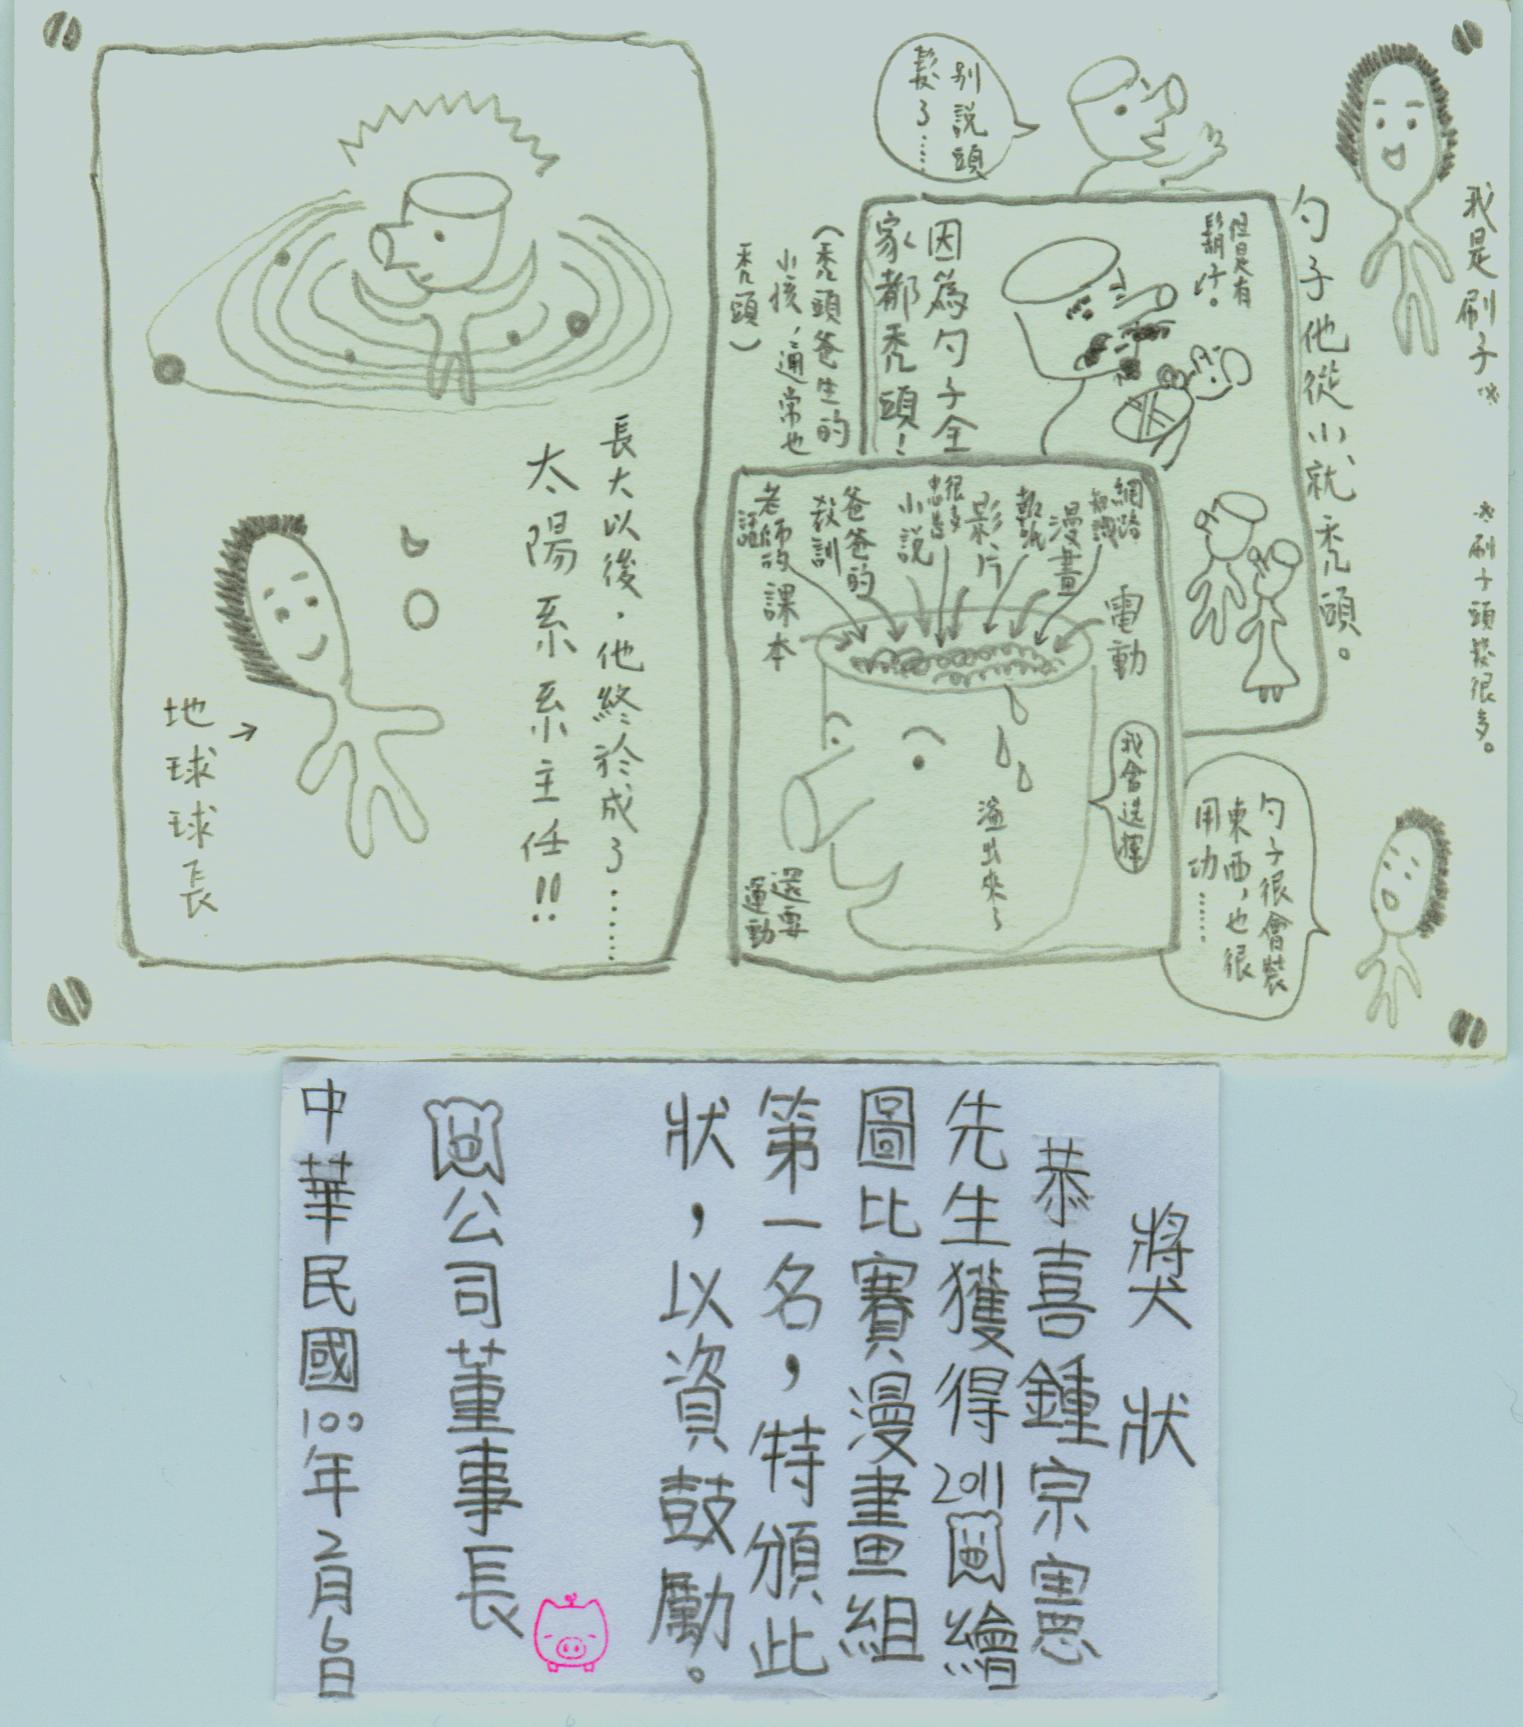 我是刷子※
※刷子頭髮很多。
勺子他從小就禿頭。
別說頭
髮了……
但是有
鬍子。
因為勺子全
家都禿頭！
（禿頭爸生的
小孩，通常也
禿頭）
勺子很會裝
東西，也很
用功……
我會選擇
電動
網路
知識
漫畫
報紙
影片
很多
小說
爸爸的
教訓
老師的
話
課本
溢出來了
還要
運動
長大以後，他終於成了……
太陽系系主任！！
地球球長
獎狀
恭喜鍾宗憲
先生獲得2011繪
圖比賽漫畫組
第一名，特頒此
狀，以資鼓勵。
公司董事長
中華民國100年2月6日